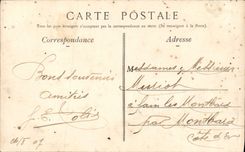 CARTE POSTALE
Tous les pays étrangers n'acceptent pas la correspondance au recto. (Se renseigner à la Poste).
Correspondance
Adresse
Bons souvenirs
amitiés
Mesdames
à Fain les Montbard
par Montbard
Côte d'Or